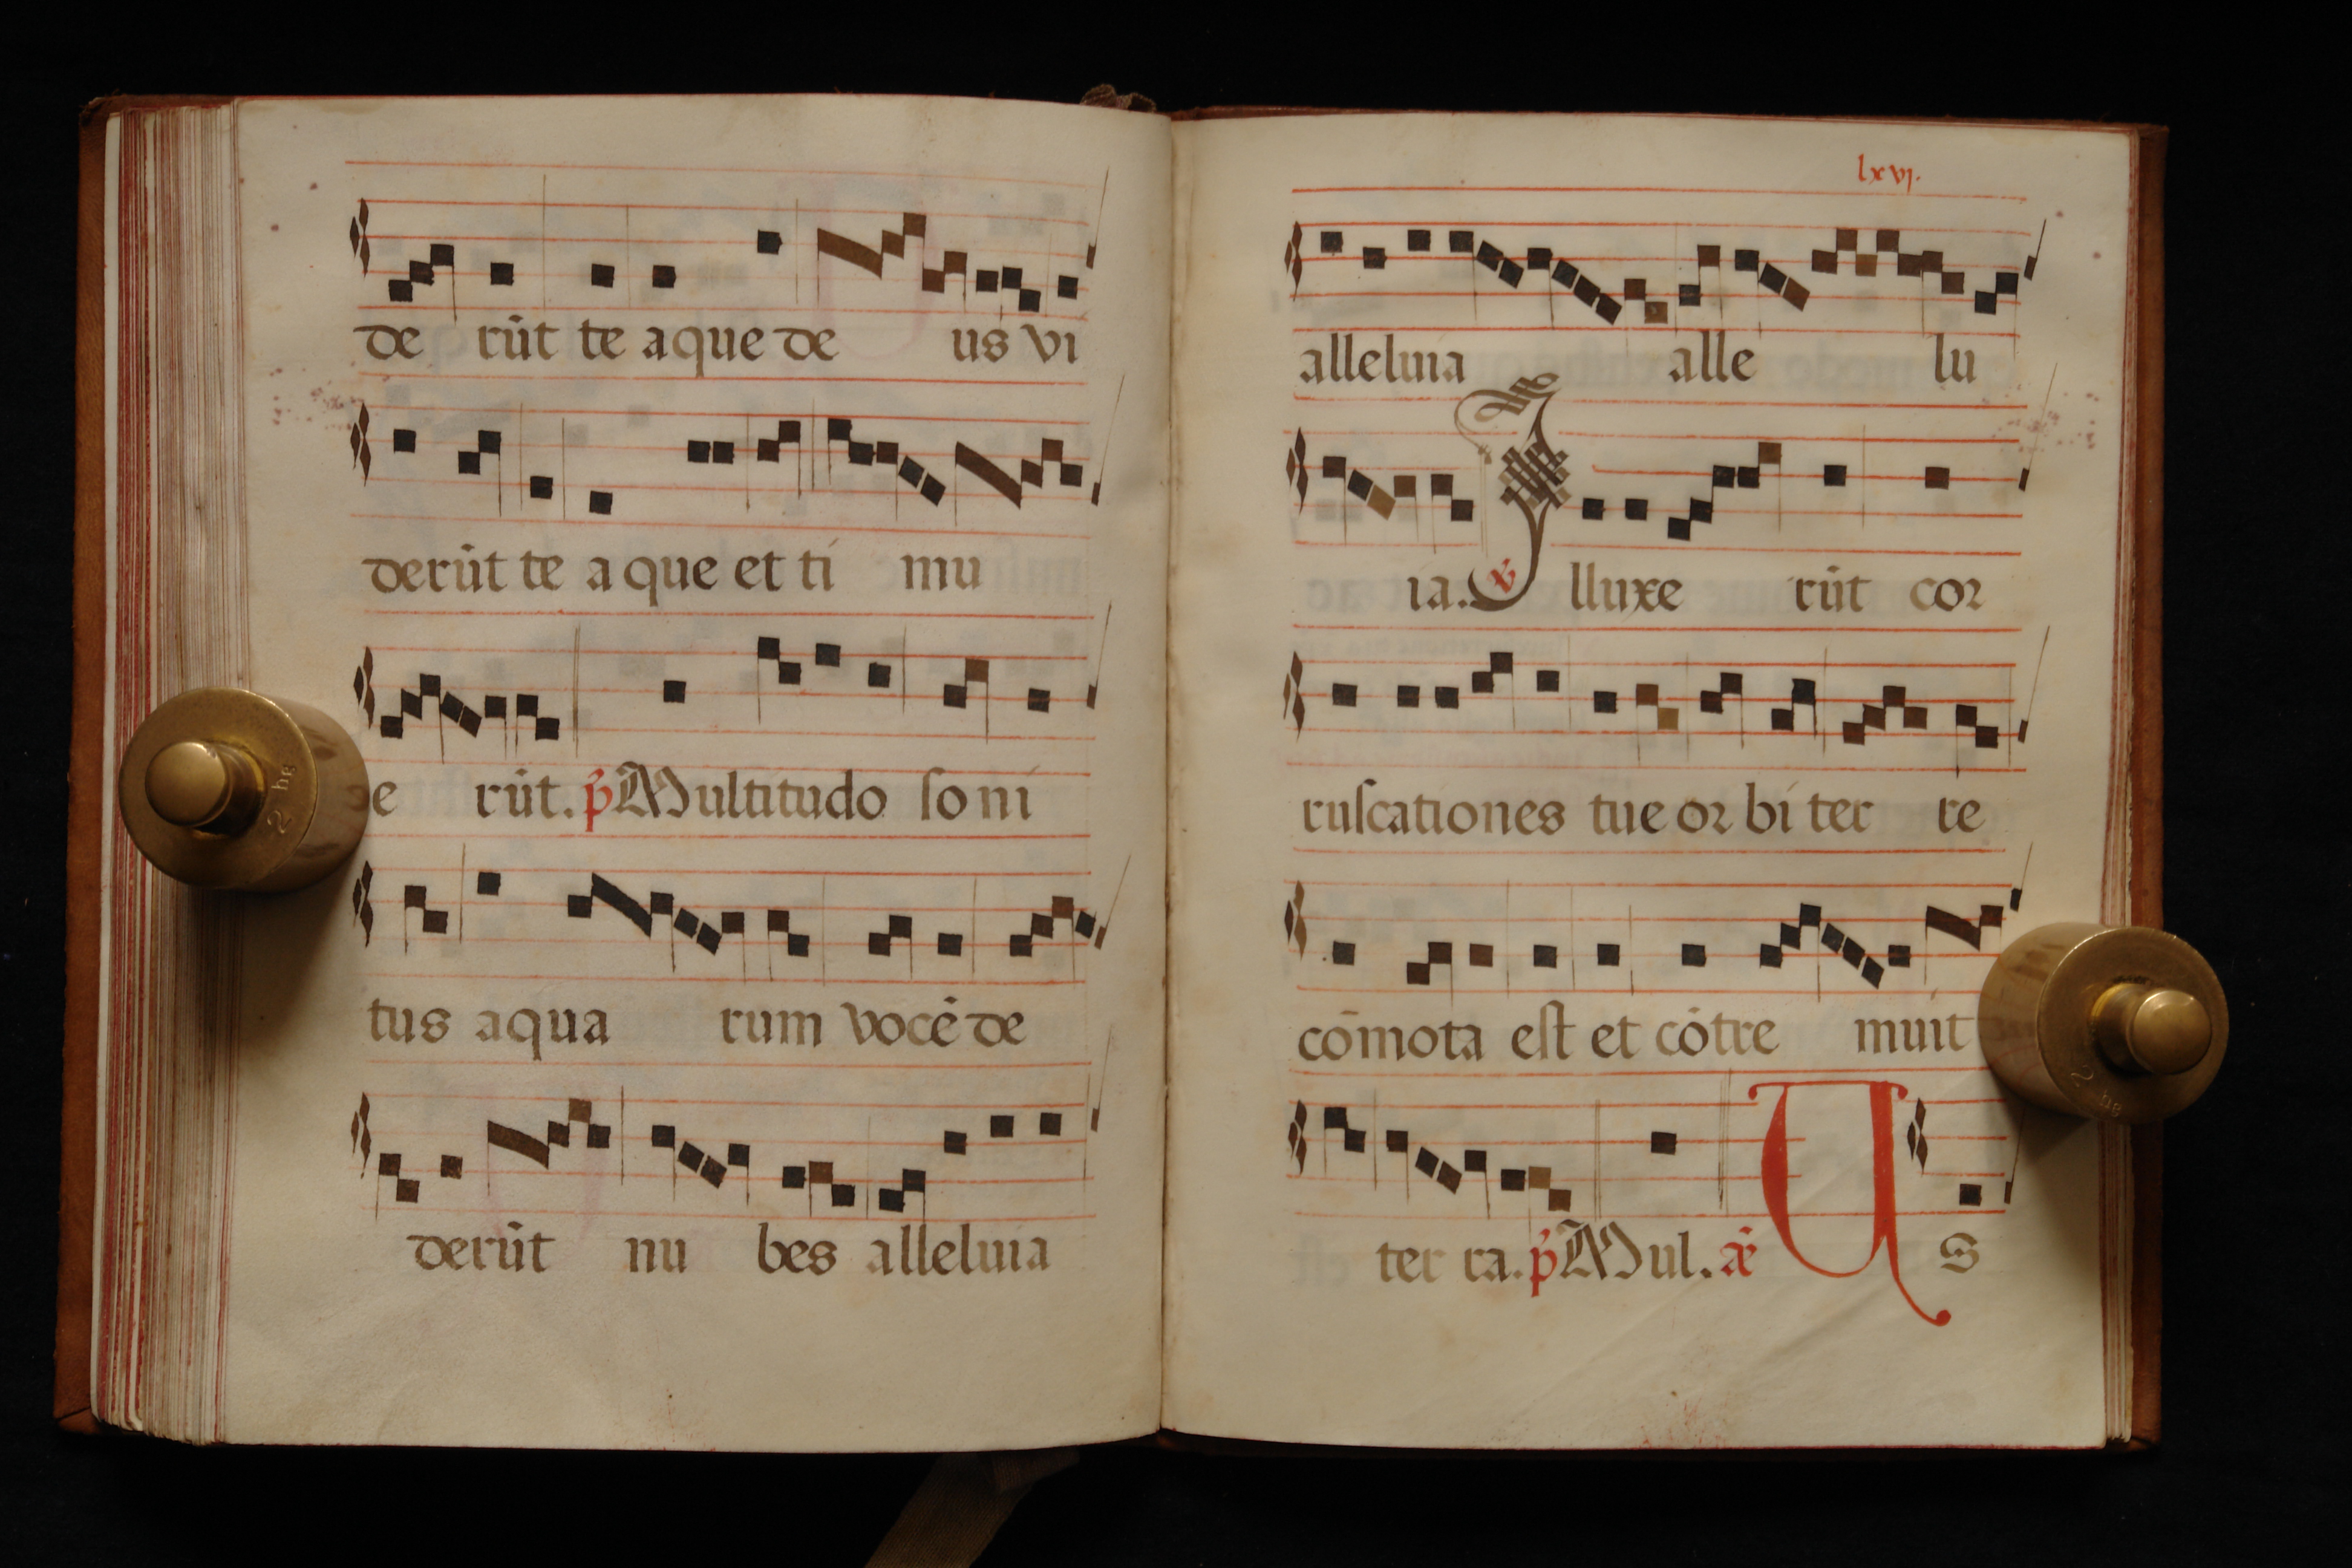 de rūt te aque de us vi
derūt te aque et ti mu
e rūt. p̄ Multitudo ſoni
tus aqua rum vocē de
derūt nu bes alleluia
lxvj.
alleluia alle lu
ia. ℣ Illuxe rūt coꝛ
ruſcationes tue oꝛbi ter re
cōmota eſt et cōtre muit
ter ra. p̄ Mul. U s
2 hg
2 hg